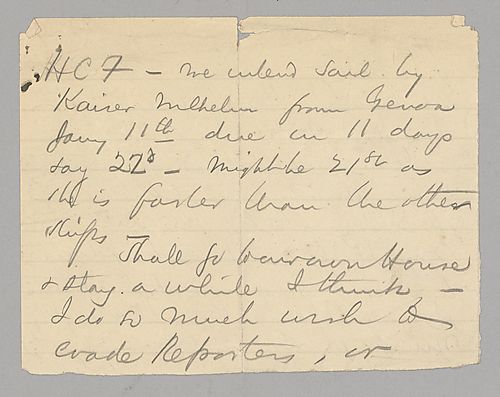 HCF – we intend sail by
Kaiser Wilhelm from Genoa
Jany 11th due in 11 days
say 22d – Might be 21st as
she is faster than the other
ships –
Shall go to our own House
& stay a while I think –
I do so much wish to
evade Reporters, or